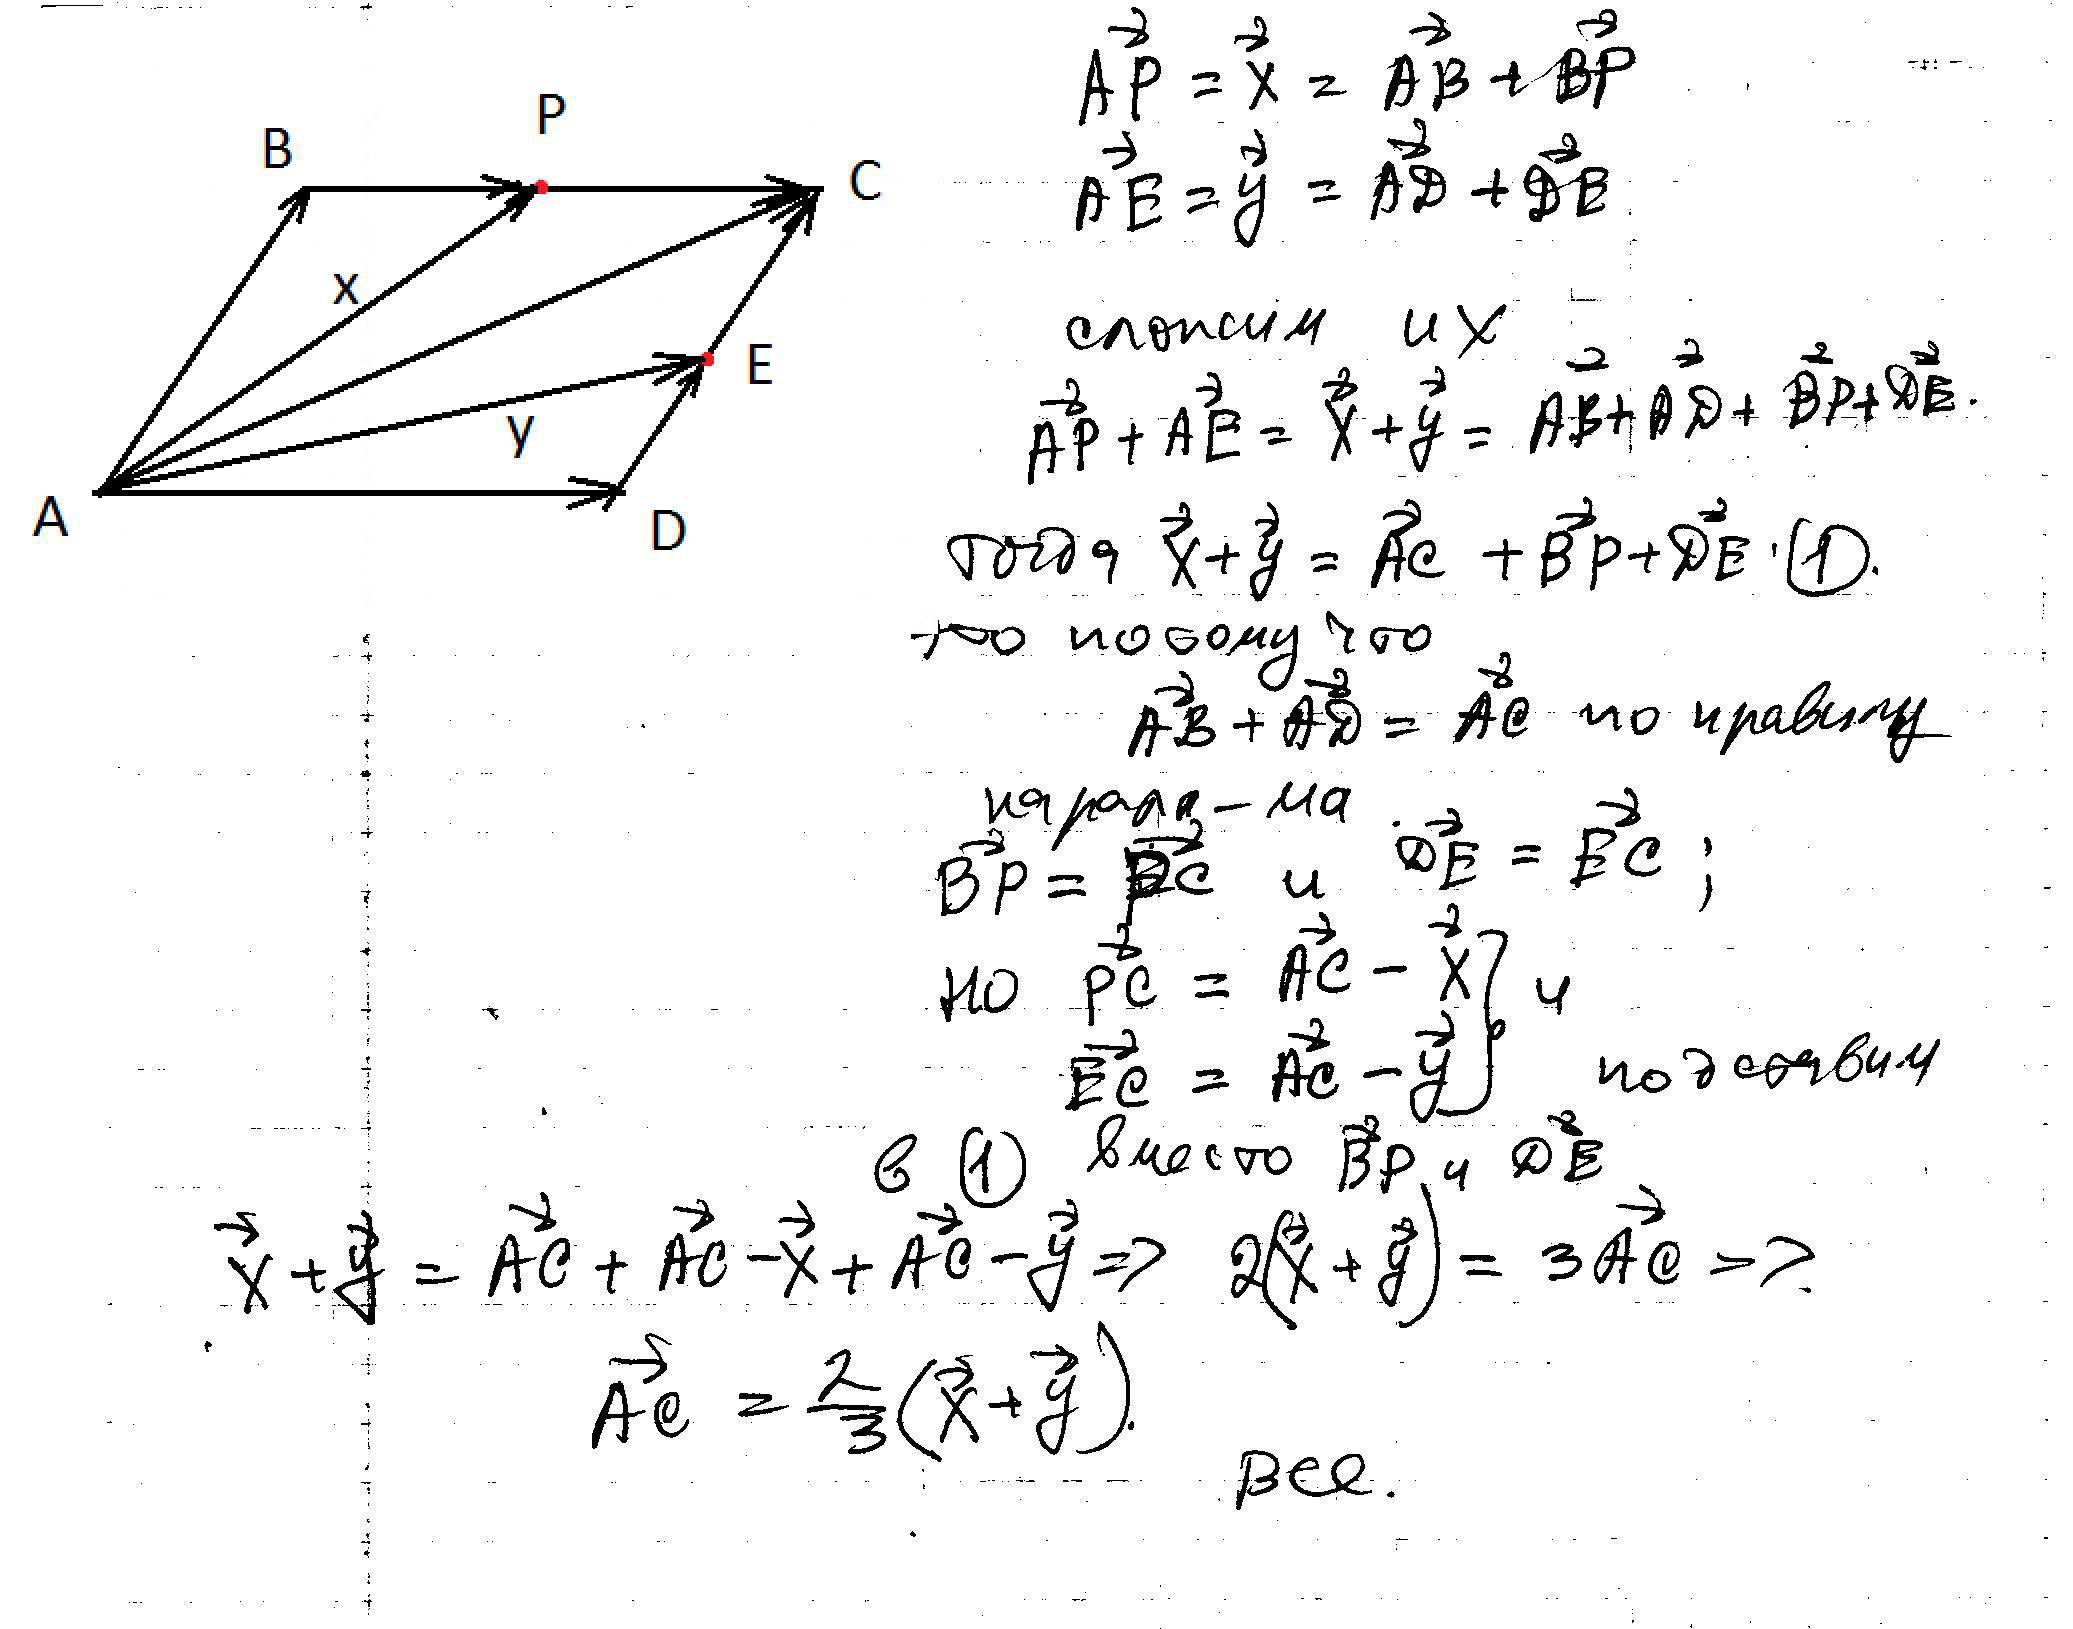 B
P
C
x
E
y
A
D
AP⃗ = x⃗ = AB⃗ + BP⃗
AE⃗ = y⃗ = AD⃗ + DE⃗
сложим их
AP⃗ + AE⃗ = x⃗ + y⃗ = AB⃗ + AD⃗ + BP⃗ + DE⃗.
тогда x⃗ + y⃗ = AC⃗ + BP⃗ + DE⃗. (1).
то потому что
AB⃗ + AD⃗ = AC⃗ по правилу
парал-ма
BP⃗ = PC⃗ и DE⃗ = EC⃗;
но PC⃗ = AC⃗ - x⃗ } и
EC⃗ = AC⃗ - y⃗ } подставим
в (1) вместо BP⃗ и DE⃗
x⃗ + y⃗ = AC⃗ + AC⃗ - x⃗ + AC⃗ - y⃗ => 2(x⃗ + y⃗) = 3AC⃗ =>.
AC⃗ = 2/3 (x⃗ + y⃗).
все.